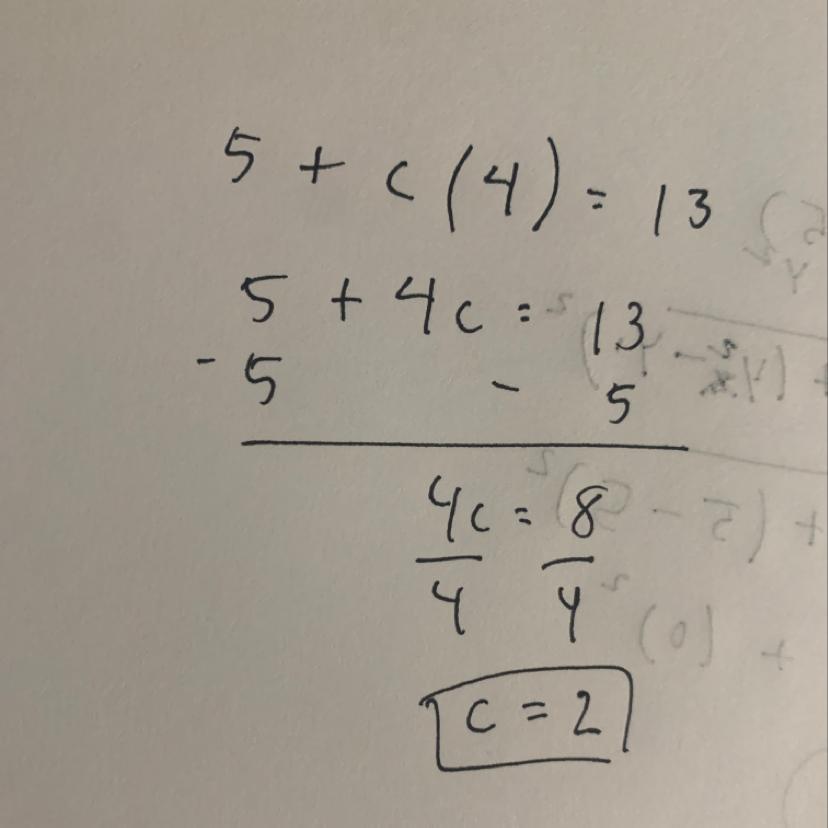 5 + c(4) = 13
5 + 4c = 13
- 5 - 5
4c = 8
4 4
c = 2